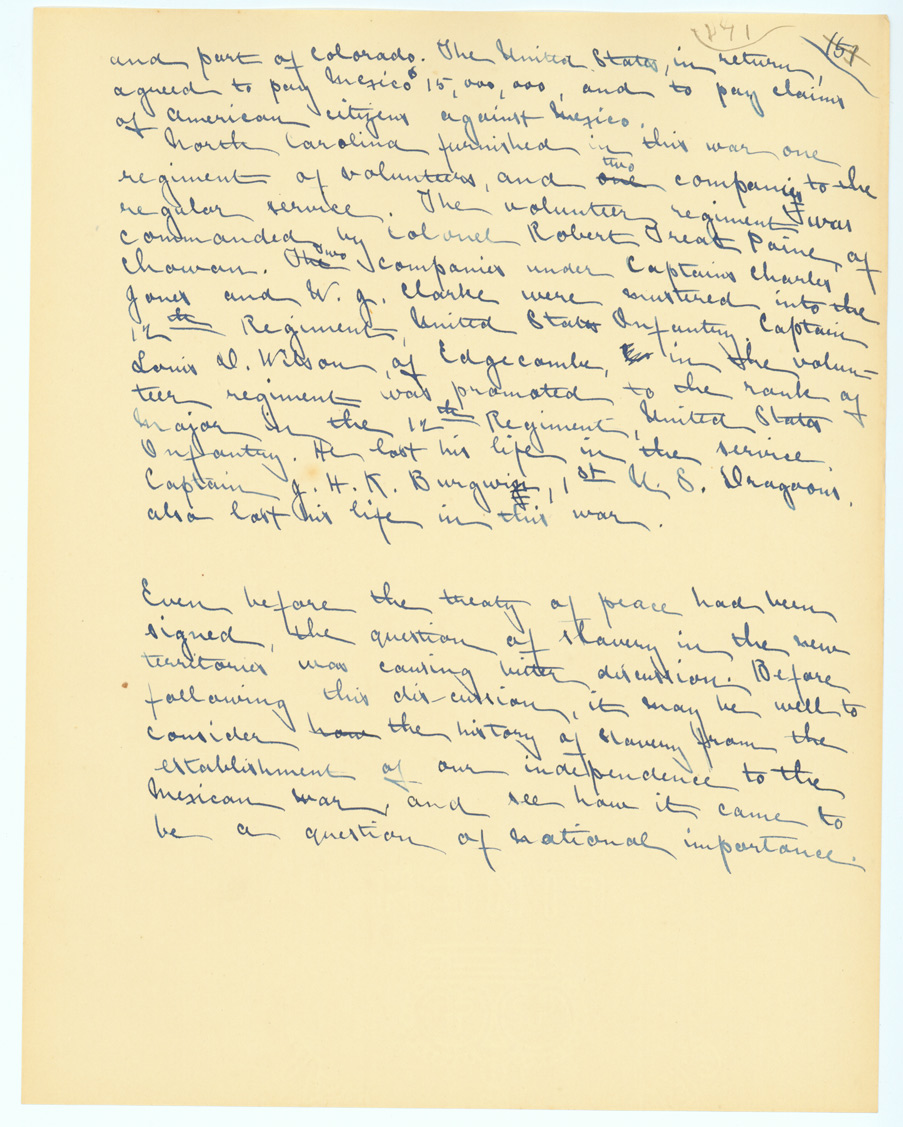 141 151
and part of Colorado. The United States, in return,
agreed to pay Mexico $15,000,000, and to pay claims
of American citizens against Mexico.
North Carolina furnished in this war one
regiment of volunteers, and one two companies to the
regular service. The volunteer regiment was
commanded by Colonel Robert Treat Paine, of
Chowan. The two companies under Captains Charles
Jones and W. J. Clarke were mustered into the
12th Regiment, United States Infantry. Captain
Louis D. Wilson, of Edgecombe, in the volun-
teer regiment was promoted to the rank of
Major in the 12th Regiment, United States
Infantry. He lost his life in the service.
Captain J. H. K. Burgwin, 1st U. S. Dragoons,
also lost his life in this war.
Even before the treaty of peace had been
signed, the question of slavery in the new
territories was causing bitter discussion. Before
following this dis-cussion, it may be well to
consider how the history of slavery from the
establishment of our independence to the
Mexican war, and see how it came to
be a question of national importance.